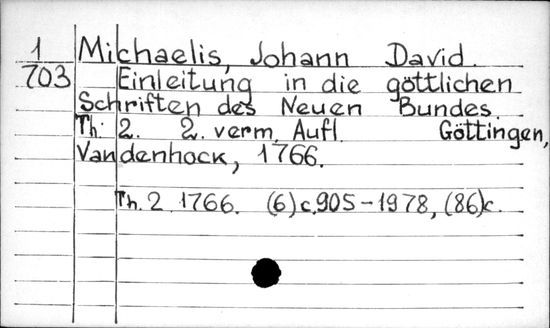 1 Michaelis, Johann David.
703 Einleitung in die göttlichen
Schriften des Neuen Bundes.
Th. 2. 2. verm. Aufl. Göttingen,
Vandenhock, 1766.
Th. 2. 1766. (6)c.905-1978, (86)c.